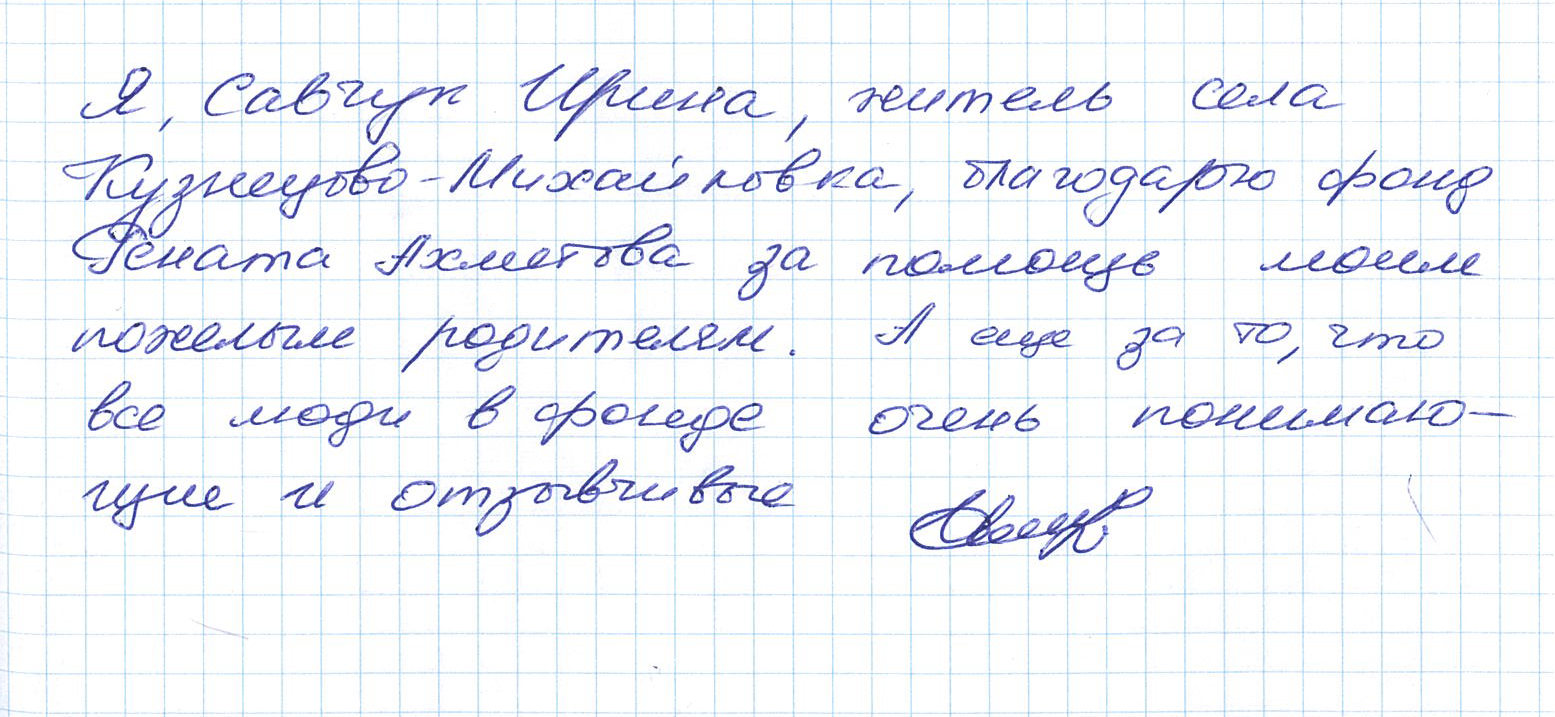 Я, Савчук Ирина, житель села
Кузнецово-Михайловка, благодарю фонд
Рената Ахметова за помощь моим
пожелым родителям. А еще за то, что
все люди в фонде очень понимаю-
щие и отзывчивые